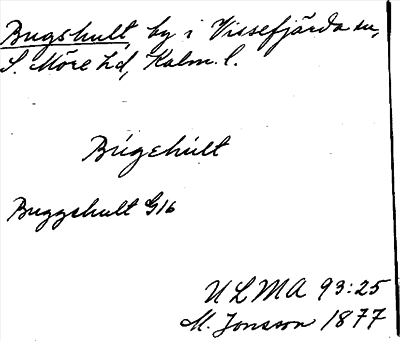 Bugshult, by i Vissefjärda sn,
S. Möre hd, Kalm. l.
Búgehúlt
Buggehult G16
ULMA 93:25
M. Jonsson 1877